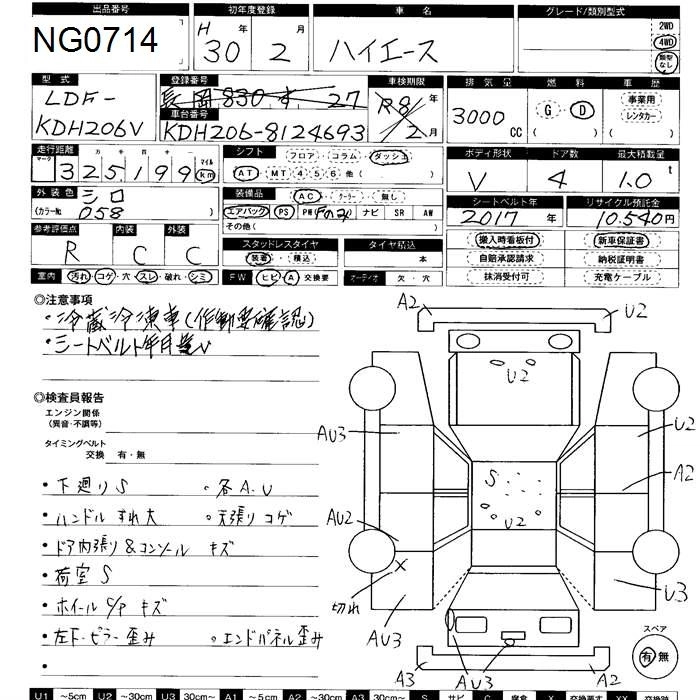 出品番号 初年度登録 車名 グレード/類別型式
NG0714 H 30年 2月 ハイエース 2WD 4WD 類型なし
型式 登録番号 車検期限 排気量 燃料 車歴
LDF-KDH206V 長岡 830 す 27 R8年 2月 3000CC G・D ( ) 事業用 レンタカー ( )
車台番号
KDH206-8124693
走行距離 シフト フロア・コラム・ダッシュ ボディ形状 ドア数 最大積載量
マーク 十万千百十一 325,199 マイル km AT・MT 4 5 6 他 ( ) V 4 1.0t
外装色 シロ 装備品 AC・クーラー・無し シートベルト年 リサイクル預託金
(カラー№) 058 エアバック PS PW ナビ SR AW 2017年 10,540円
その他 ( )
参考評価点 内装 外装 スタッドレスタイヤ タイヤ積込 搬入時看板付 新車保証書
R C C 装着・積込 本 自賠承認請求 納税証明書
室内 汚れ・コゲ・穴・スレ・破れ・シミ FW ヒビ・A・交換要 オーディオ 欠・穴 抹消受付可 充電ケーブル
◎注意事項
・冷蔵冷凍車(作動要確認)
・シートベルト年月
◎検査員報告
エンジン関係
(異音・不調等)
タイミングベルト
交換 有・無
・下廻りS 。各A.U
・ハンドルすれ大 。天張りコゲ
・ドア内張り&コンソール キズ
・荷室S
・ホイールC/P キズ
・左下・ピラー歪み 。エンドパネル歪み
・
A2 U2
U2
AU3 U2
S A2
U2
AU2
X
切れ U3
AU3
A3 AU3 A2
スペア
有 無
U1 ～5cm U2 ～30cm U3 30cm～ A1 ～5cm A2 ～30cm A3 30cm～ S サビ C 腐食 X 交換要す XX 交換済